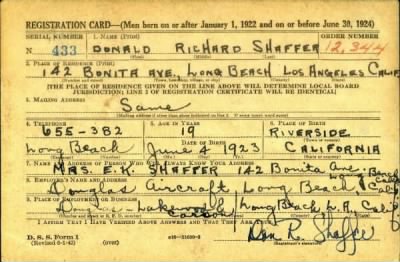 REGISTRATION CARD—(Men born on or after January 1, 1922 and on or before June 30, 1924)
SERIAL NUMBER 1. NAME (Print) ORDER NUMBER
N 433 DONALD RICHARD SHAFFER 12,344
2. PLACE OF RESIDENCE (Print)
142 BONITA AVE., LONG BEACH LOS ANGELES CALIF
[THE PLACE OF RESIDENCE GIVEN ON THE LINE ABOVE WILL DETERMINE LOCAL BOARD
JURISDICTION; LINE 2 OF REGISTRATION CERTIFICATE WILL BE IDENTICAL]
3. MAILING ADDRESS
Same
4. TELEPHONE 5. AGE IN YEARS 6. PLACE OF BIRTH
655-382 19 RIVERSIDE
DATE OF BIRTH
Long Beach June 4 1923 CALIFORNIA
7. NAME AND ADDRESS OF PERSON WHO WILL ALWAYS KNOW YOUR ADDRESS
MRS. E.K. SHAFFER 142 Bonita Ave.
8. EMPLOYER'S NAME AND ADDRESS
Douglas Aircraft, Long Beach Calif
9. PLACE OF EMPLOYMENT OR BUSINESS
Douglas - Lakewood & Carson Long Beach L.A. Calif
I AFFIRM THAT I HAVE VERIFIED ABOVE ANSWERS AND THAT THEY ARE
D. S. S. Form 1 Don R. Shaffer
(Revised 6-1-42) (over) (Registrant's signature)